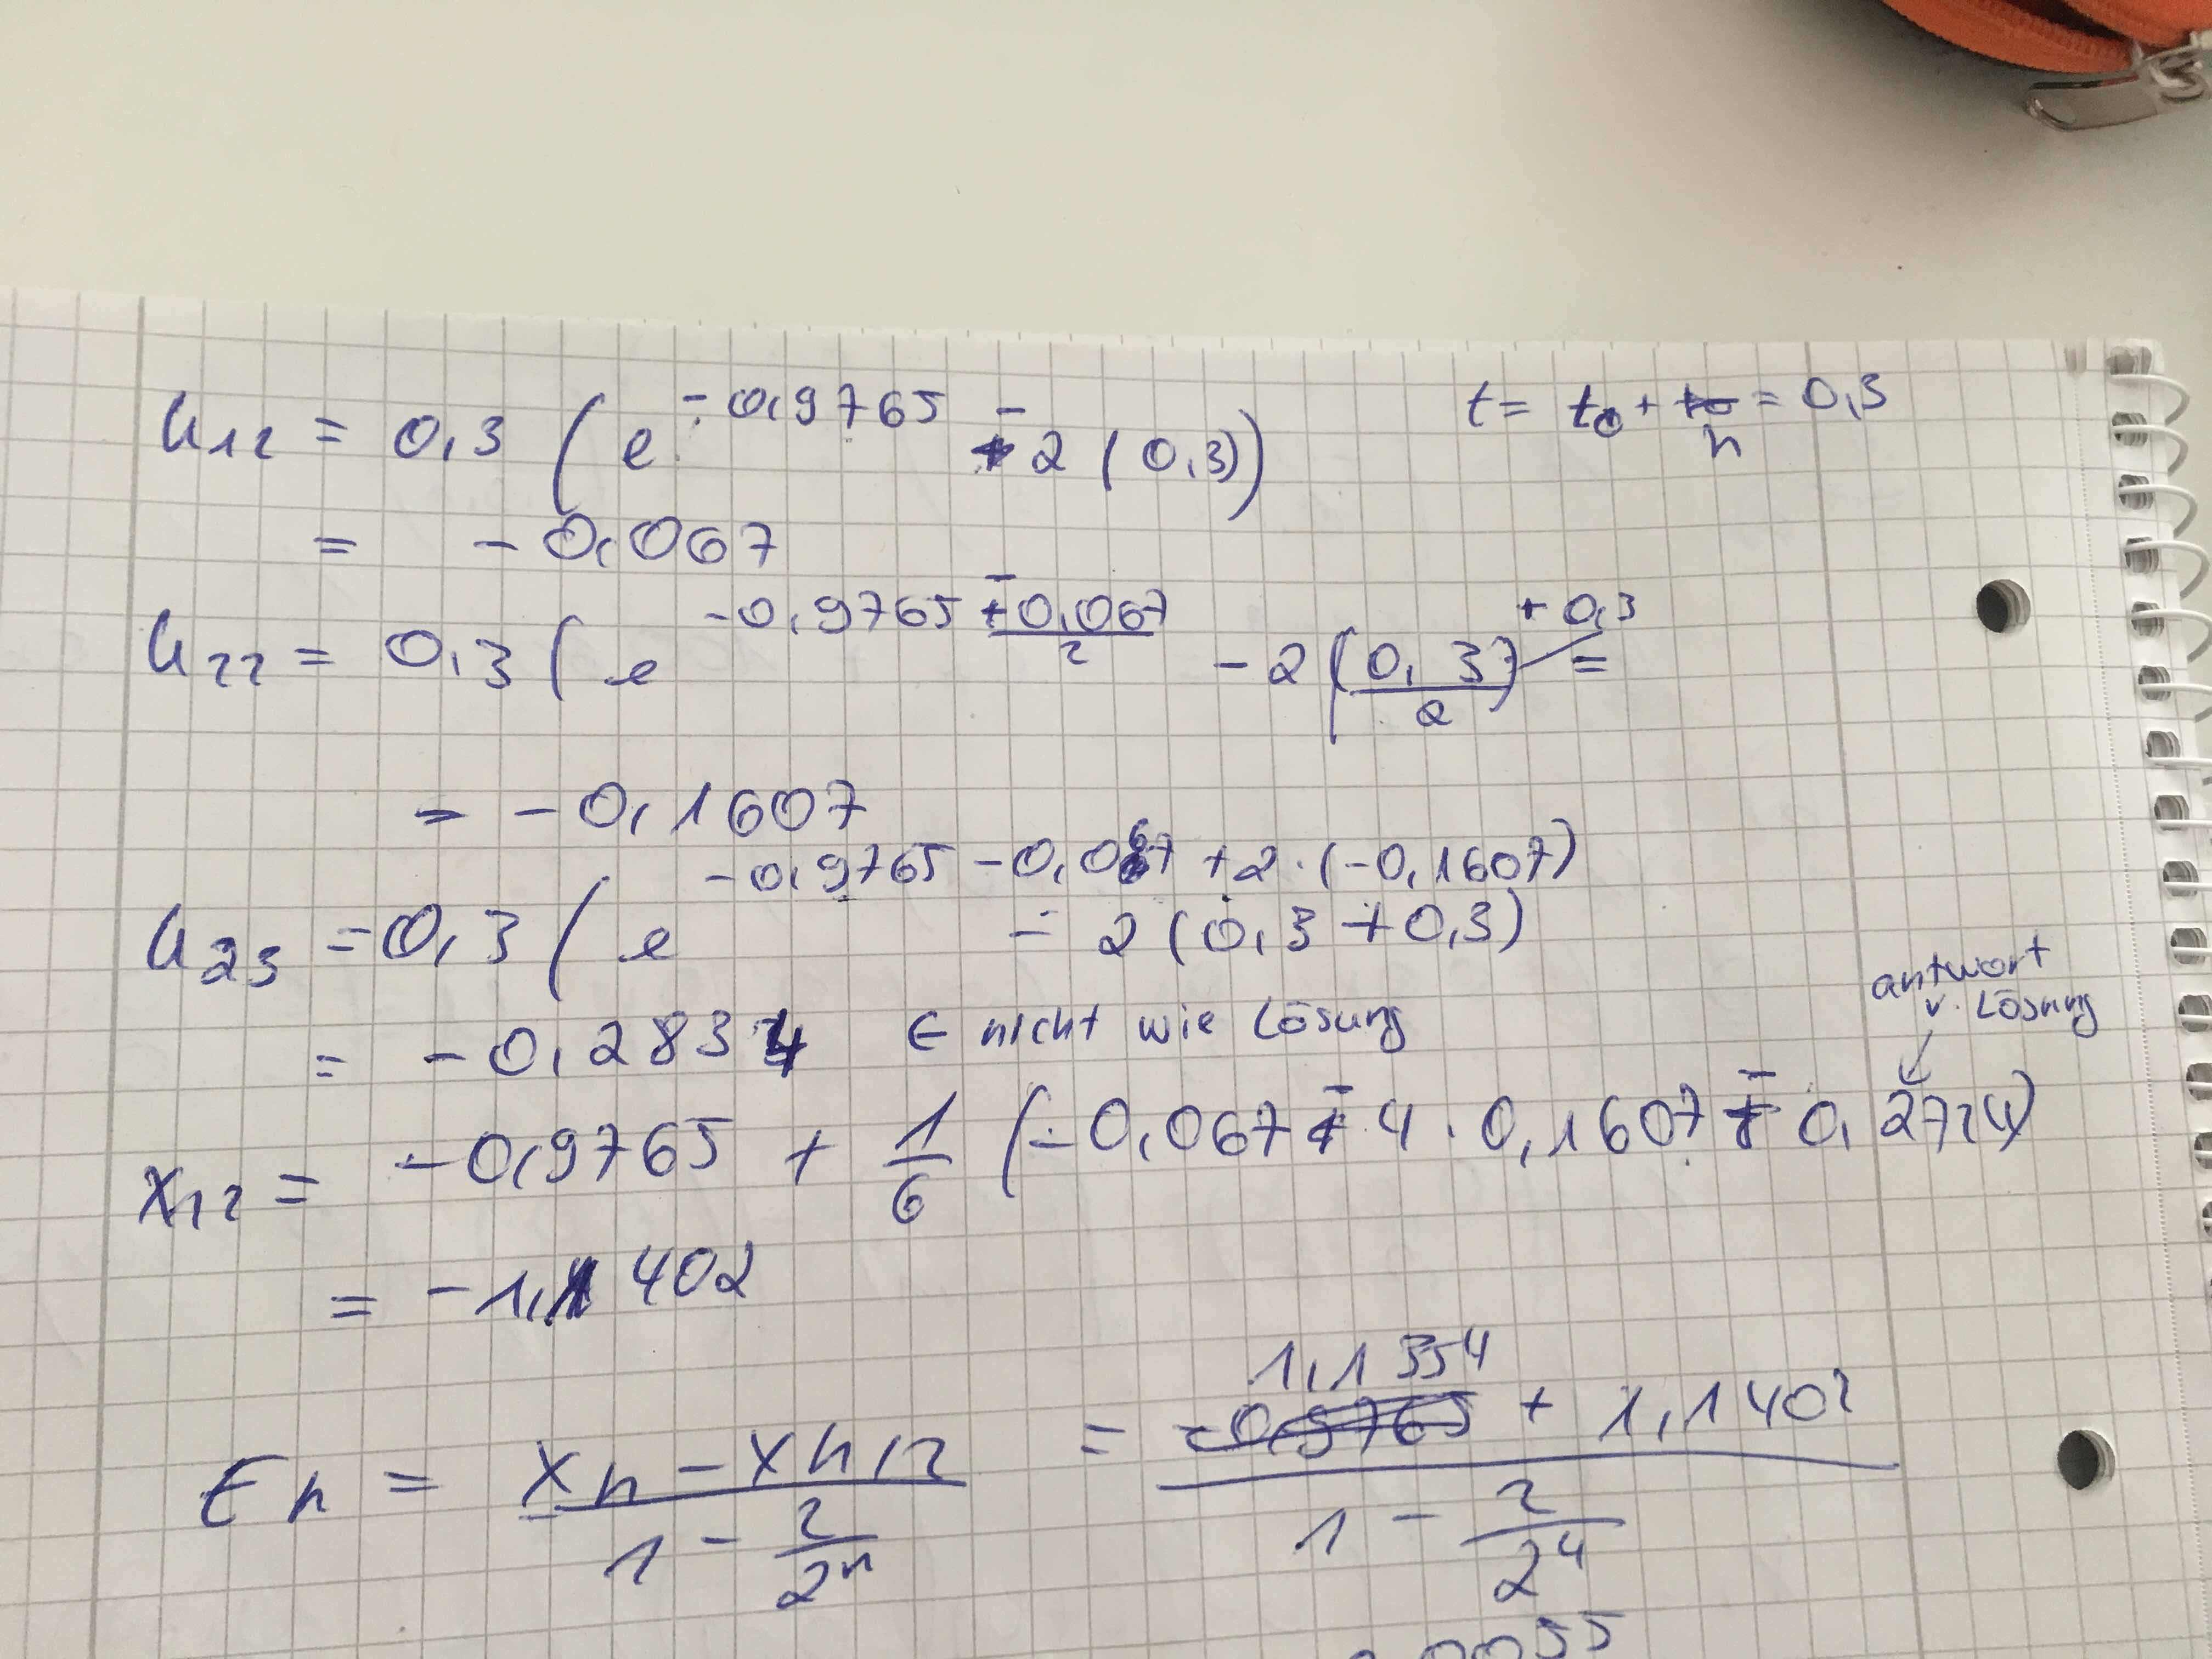 k12 = 0,3 (e^-0,9765 - 2 (0,3)) t = t0 + h = 0,3
= - 0,067
k22 = 0,3 (e^-0,9765 - 0,067/2 - 2 (0,3/2) + 0,3 =
= - 0,1607
k23 = 0,3 (e^-0,9765 - 0,067 + 2 · (-0,1607) - 2 (0,3 + 0,3)
= - 0,2834 ← nicht wie Lösung
antwort
v. Lösung
x12 = - 0,9765 + 1/6 (- 0,067 - 4 · 0,1607 - 0,2724)
= - 1,1402
Eh = xh - xh/2 / 1 - 2/2^n = 1,1354 + 1,1402 / 1 - 2/2^4